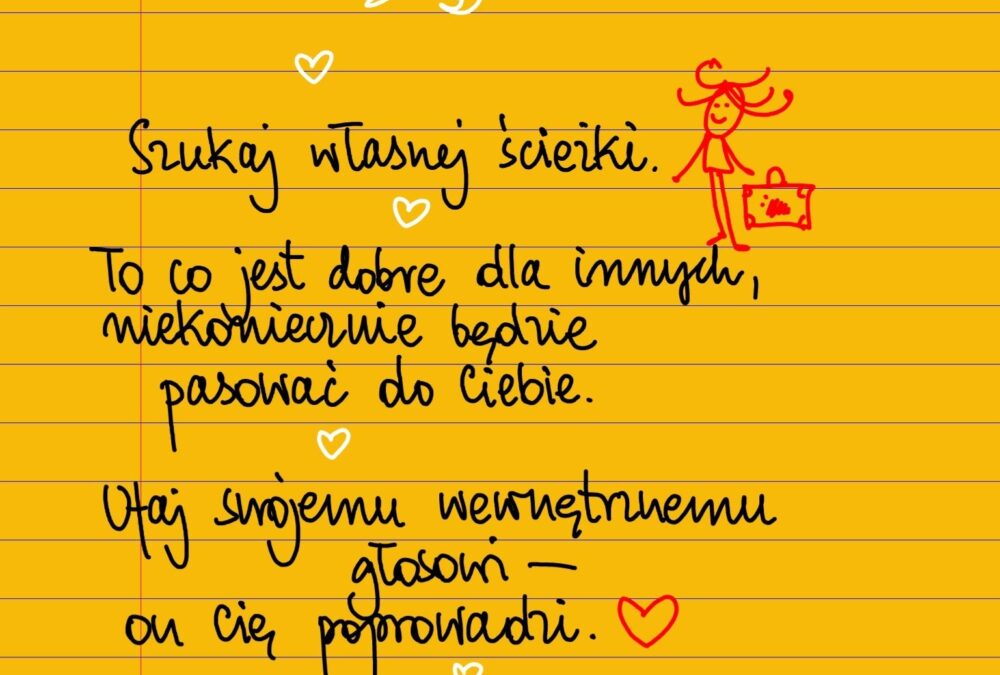 Szukaj własnej ścieżki.
To co jest dobre dla innych,
niekoniecznie będzie
pasować do Ciebie.
Ufaj swojemu wewnętrznemu
głosowi —
on Cię poprowadzi.